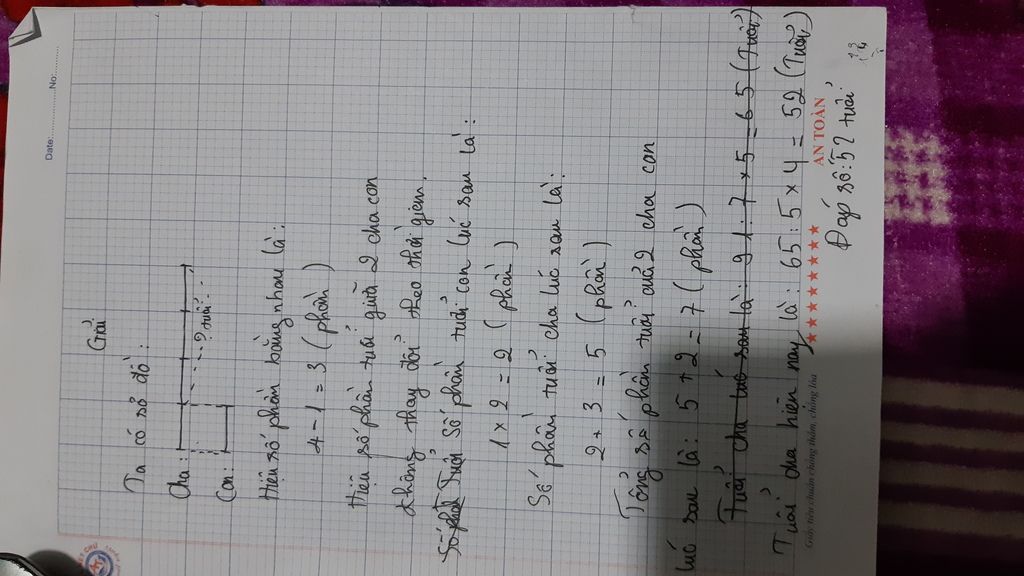 Date:..............No:..........
Giải
Ta có sơ đồ:
Cha
? tuổi
Con:
Hiệu số phần bằng nhau là:
4 - 1 = 3 (phần)
Hiệu số phần tuổi giữa 2 cha con
không thay đổi theo thời gian.
Tuổi Số phần tuổi con lúc sau là:
1 x 2 = 2 (phần)
Số phần tuổi cha lúc sau là:
2 + 3 = 5 (phần)
Tổng số phần tuổi của 2 cha con
lúc sau là: 5 + 2 = 7 (phần)
Tuổi cha lúc sau là: 91 : 7 x 5 = 65 (Tuổi)
Tuổi cha hiện nay là: 65 : 5 x 4 = 52 (Tuổi)
AN TOÀN
Đáp số: 52 tuổi